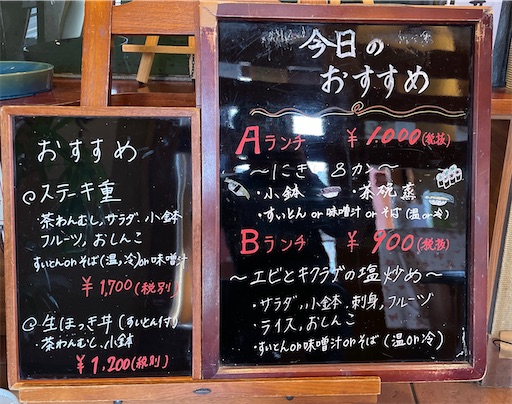 おすすめ
◎ステーキ重
・茶わんむし,サラダ,小鉢
フルーツ,おしんこ
すいとんorそば(温,冷)or味噌汁
¥1,700(税別)
◎生ほっき丼(すいとん付)
・茶わんむし,小鉢
¥1,200(税別)
今日の
おすすめ
Aランチ ¥1.000(税抜)
〜にぎり8カン〜
・小鉢 ・茶碗蒸
・すいとんor味噌汁orそば(温or冷)
Bランチ ¥900(税抜)
〜エビとキクラゲの塩炒め〜
・サラダ,小鉢,刺身,フルーツ
・ライス,おしんこ
・すいとんor味噌汁orそば(温or冷)